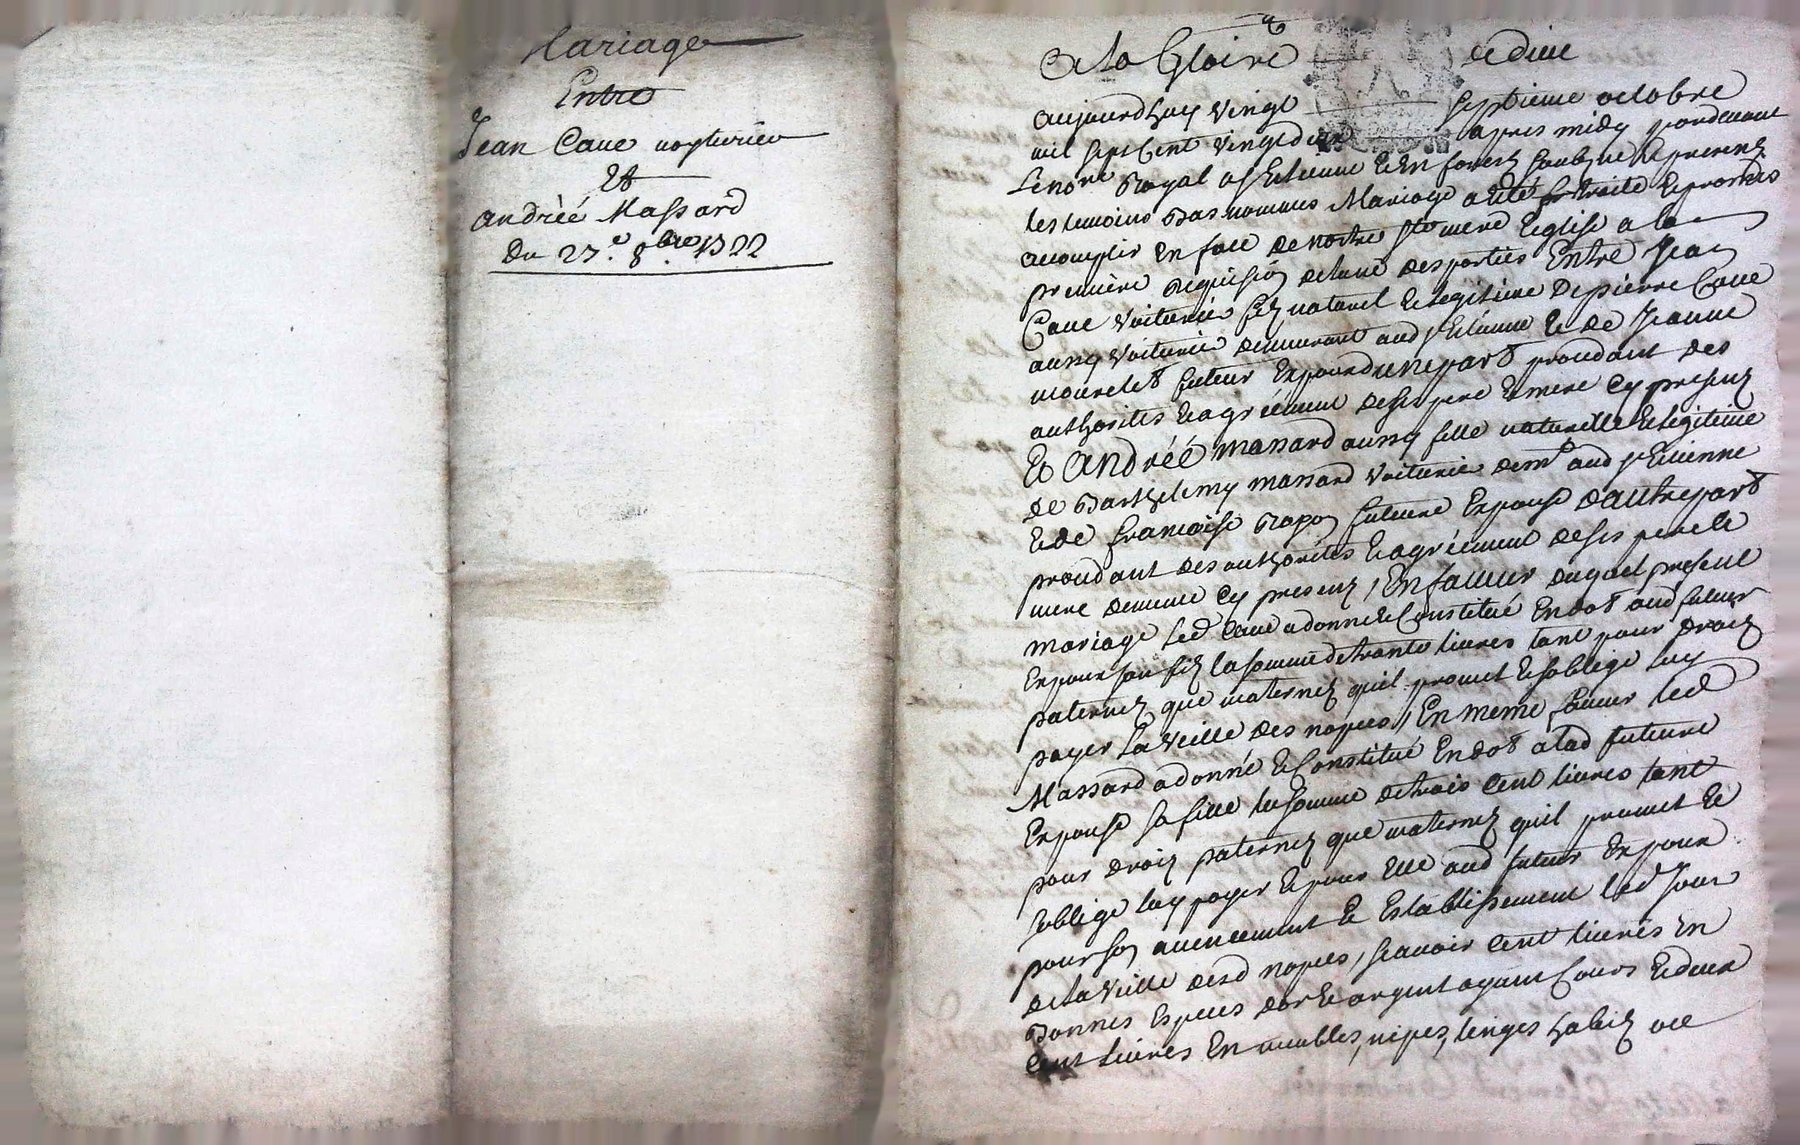 Mariage
Entre
Jean Caue voyturier
Et
andréé Massard
Du 27.e 8.bre 1722
A la Gloire de dieu
aujourdhuy vingt septieme octobre
mil sept Cent vingt deux apres midy pardeuant
Le no.re Royal a St Estienne En forest soubzne & presens
les temoins bas nommes Mariage a été traité & promis
accomplir En face de nostre Ste mere Eglise a la
premiere requisiõn de lune des parties Entre Jean
Caue Voiturier filz naturel & legitime de pierre Caue
aussy Voiturier demeurant aud St Etienne & de Jeanne
mourelet futeur Expoux dune part procedant des
authorites & agréement de ses pere & mere Cy presens
& Andréé massard aussy fille naturelle & legitime
de Barthelemy massard Voiturier demt aud st Etienne
& de francoise Rapon futeure Expouse dautre part
procedant des authorites & agréement de ses pere &
mere deme Cy presens, En faueur duquel present
mariage Led Caue a donné & Constitué En dot aud futeur
Expoux son filz la somme de trante liures tant pour droitz
paternelz que maternelz quil promet & soblige luy
payer La Veille des nopces, En meme faueur led
Massard a donné & Constitué En dot a lad futeure
Expouse sa fille la somme de trois Cent liures tant
pour droitz paternelz que maternelz quil promet &
soblige luy payer & pour Elle aud futeur Expoux
pour son auencement & Establissement led Jour
de la Veille desd nopces, scauoir Cent liures En
Bonnes Especes dor & argent ayant Cours & deux
Cent liures En meubles, nipes, linges habitz